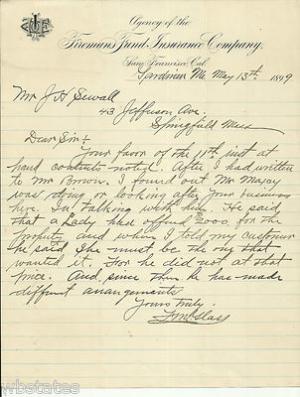 Agency of the
Fireman's Fund Insurance Company,
San Francisco, Cal.
Sardinia Me, May 13th, 1899
Mr J H Sewall
43 Jefferson Ave.
Springfield Mass
Dear Sir:-
Your favor of the 11th, just at
hand contents noted. After I had written
to Mr Brown. I found out Mr
was trying or looking after your business
here. In talking with He said
that a Lady has offered 2000. for the
property and when I told my customer
he said she must be the that
wanted it. For he did not at that
price. And since then he has made
different arrangements
Yours Truly.
wbstates